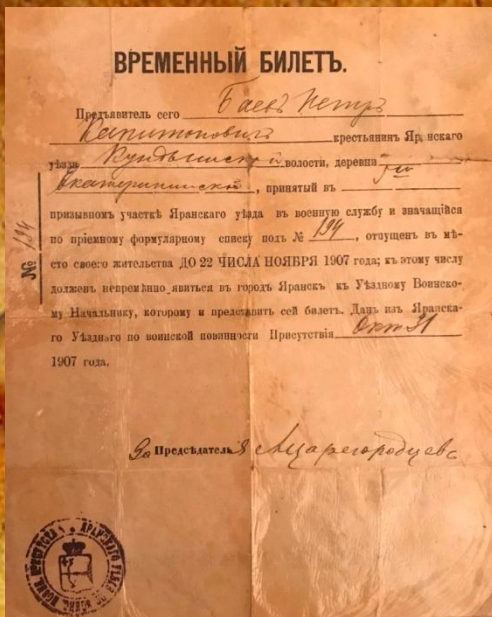 ВРЕМЕННЫЙ БИЛЕТЪ.
Предъявитель сего Баевъ Петръ
Капитоновичъ крестьянинъ Яранскаго
уѣзда Кундышской волости, деревня
Екатерининской, принятый въ
призывномъ участкѣ Яранскаго уѣзда въ военную службу и значащійся
по пріемному формулярному списку подъ № 194, отпущенъ въ мѣ-
сто своего жительства ДО 22 ЧИСЛА НОЯБРЯ 1907 года; къ этому числу
долженъ непремѣнно явиться въ городъ Яранскъ къ Уѣздному Воинско-
му Начальнику, которому и представить сей билетъ. Данъ изъ Яранска-
го Уѣзднаго по воинской повинности Присутствія Окт 31
1907 года.
№ 194
За Предсѣдателя Царегородцевъ